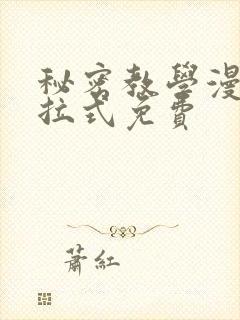 秘密教學漫
拉式免費
蕭紅